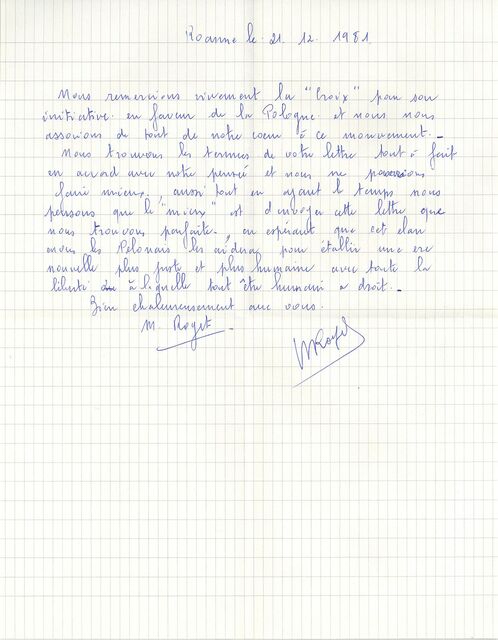 Roanne le 21. 12. 1981.
Nous remercions vivement la "Croix" pour son
initiative en faveur de la Pologne et nous nous
associons de tout de notre coeur à ce mouvement._
Nous trouvons les termes de votre lettre tout à fait
en accord avec notre pensée et nous ne pouvions
faire mieux, aussi tout en ayant le temps nous
pensons que le "mieux" est d'envoyer cette lettre que
nous trouvons parfaite, en espérant que cet élan
envers les Polonais les aidera pour établir une ère
nouvelle plus juste et plus humaine avec toute la
liberté à laquelle tout être humain a droit._
Bien chaleureusement avec vous.
M. Roget